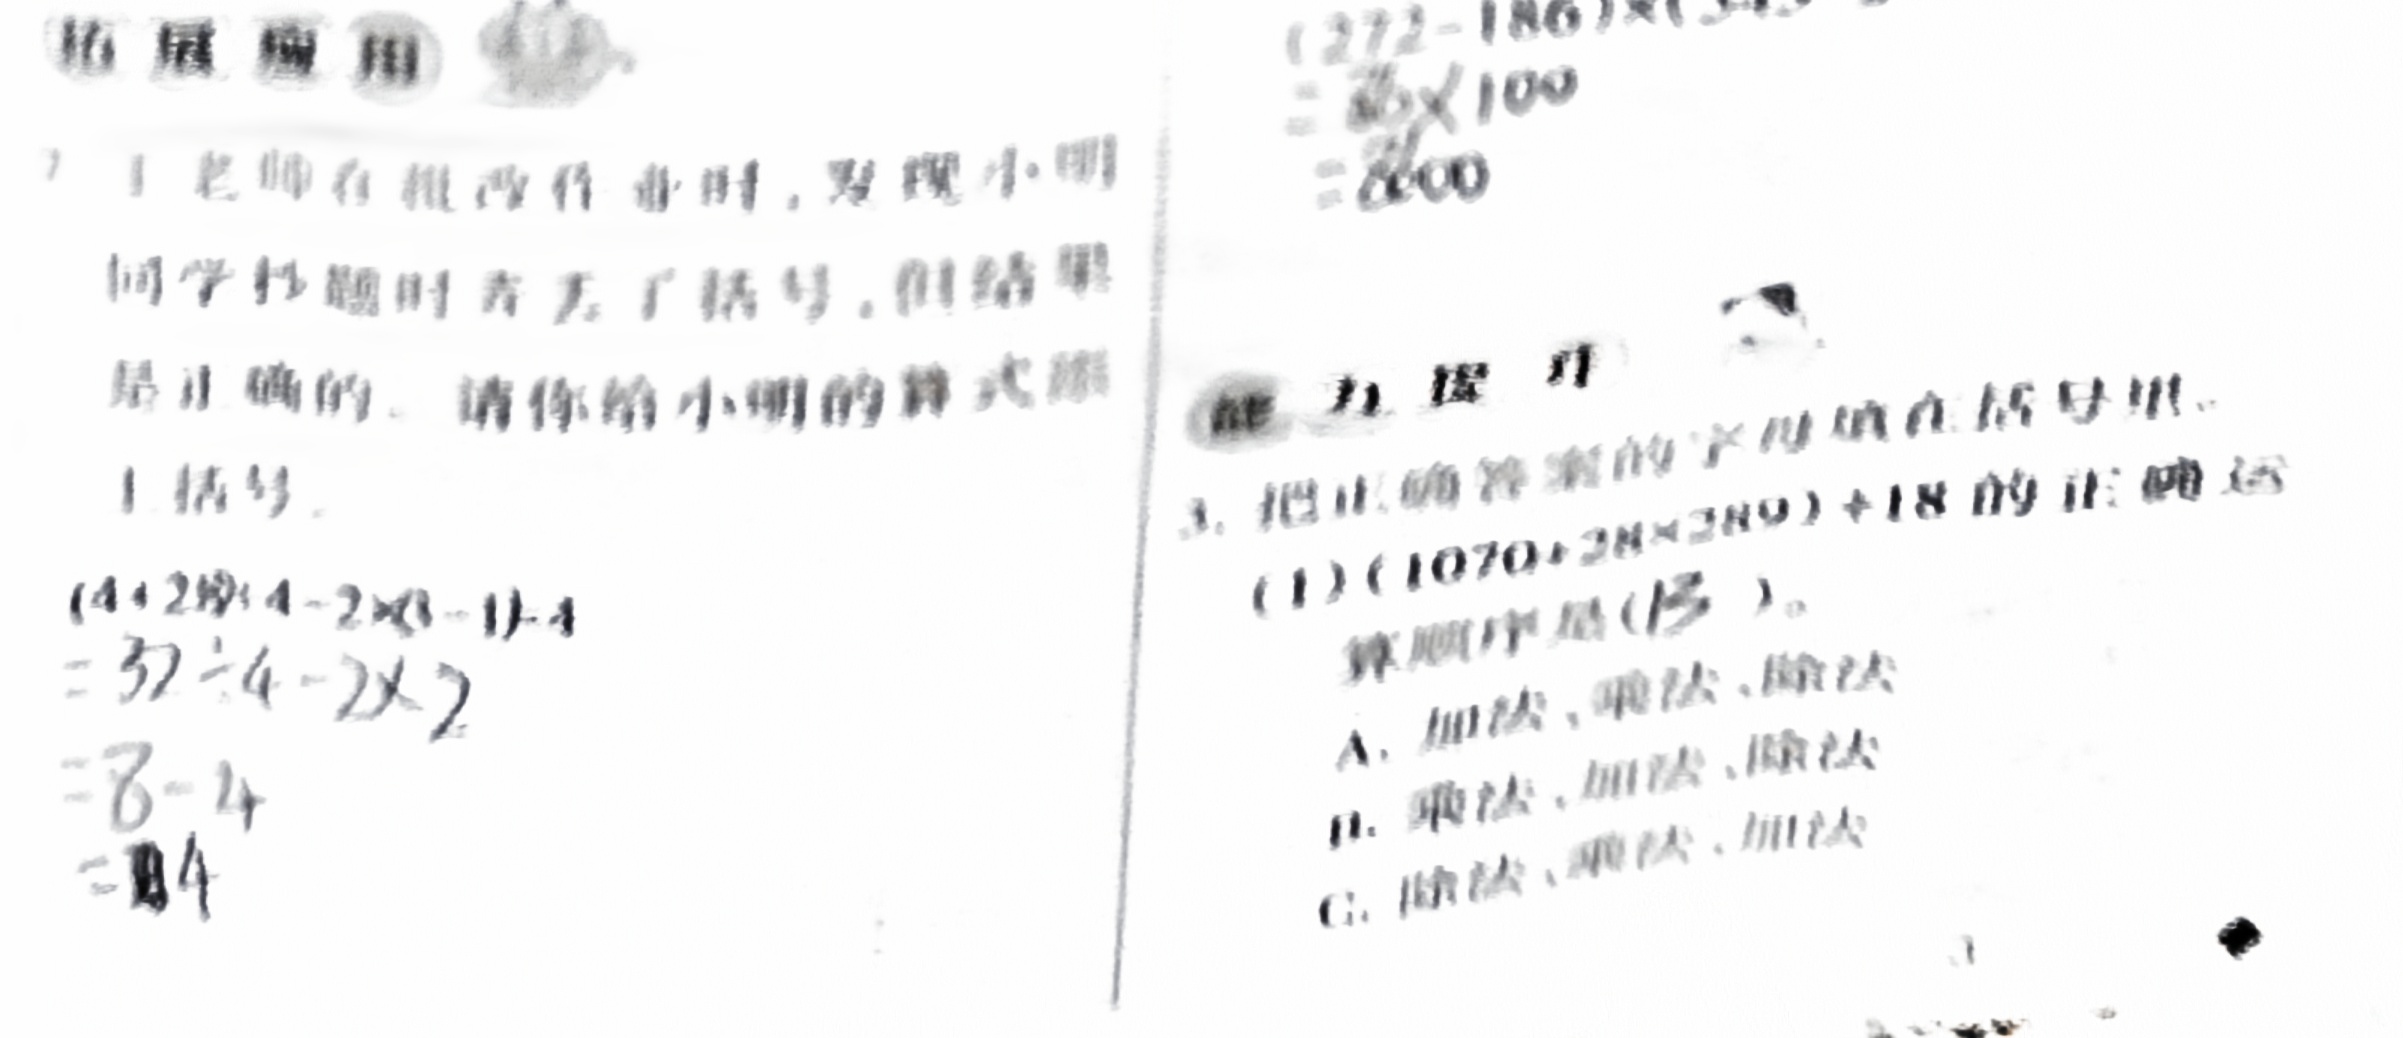 拓展应用
7. 丁老师在批改作业时，发现小明
同学抄题时丢了括号，但结果
是正确的。请你给小明的算式添
上括号。
(4+28)÷4-2×(3-1)=4
=32÷4-2×2
=8-4
=4
=86×100
=8600
能力提升
3. 把正确答案的字母填在括号里。
(1)(1070+28×289)÷18的正确运
算顺序是(B)。
A. 加法、乘法、除法
B. 乘法、加法、除法
C. 除法、乘法、加法